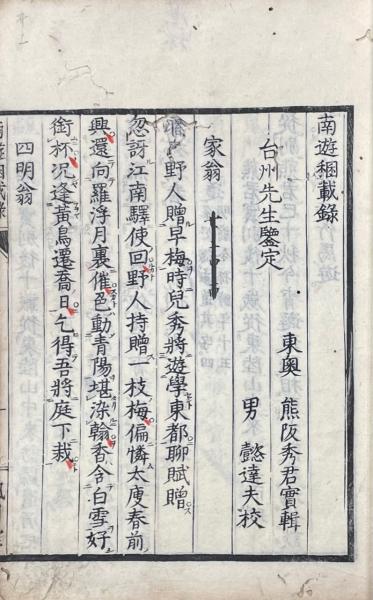 南遊稛載錄
台州先生鑒定
東奧 熊阪秀君實輯
男 懿達夫校
家翁
野人贈早梅時兒秀將遊學東都聊賦贈
忽訝江南驛使回野人持贈一枝梅偏憐太庾春前
興還向羅浮月裏催色動青陽堪染翰香含白雪好
銜杯况逢黃鳥遷喬日乞得吾將庭下栽
四明翁